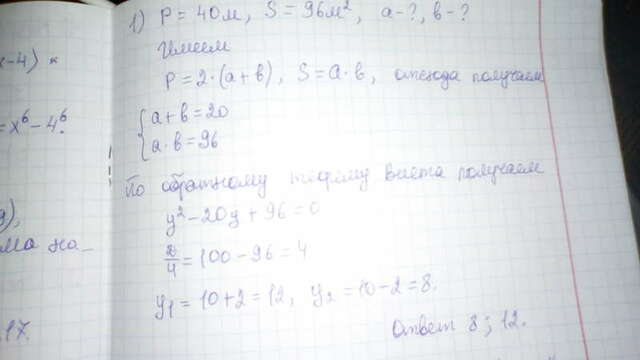 x-4) ×
= x⁶ - 4⁶.
ма на-
17.
1) P = 40м, S = 96м², a-?, в-?
Имеем
P = 2·(a+в), S = a·в, отсюда получаем
{ a+в = 20
a·в = 96
По обратному теорему Виета получаем
y² - 20y + 96 = 0
D/4 = 100 - 96 = 4
y₁ = 10+2 = 12, y₂ = 10-2 = 8.
Ответ 8; 12.